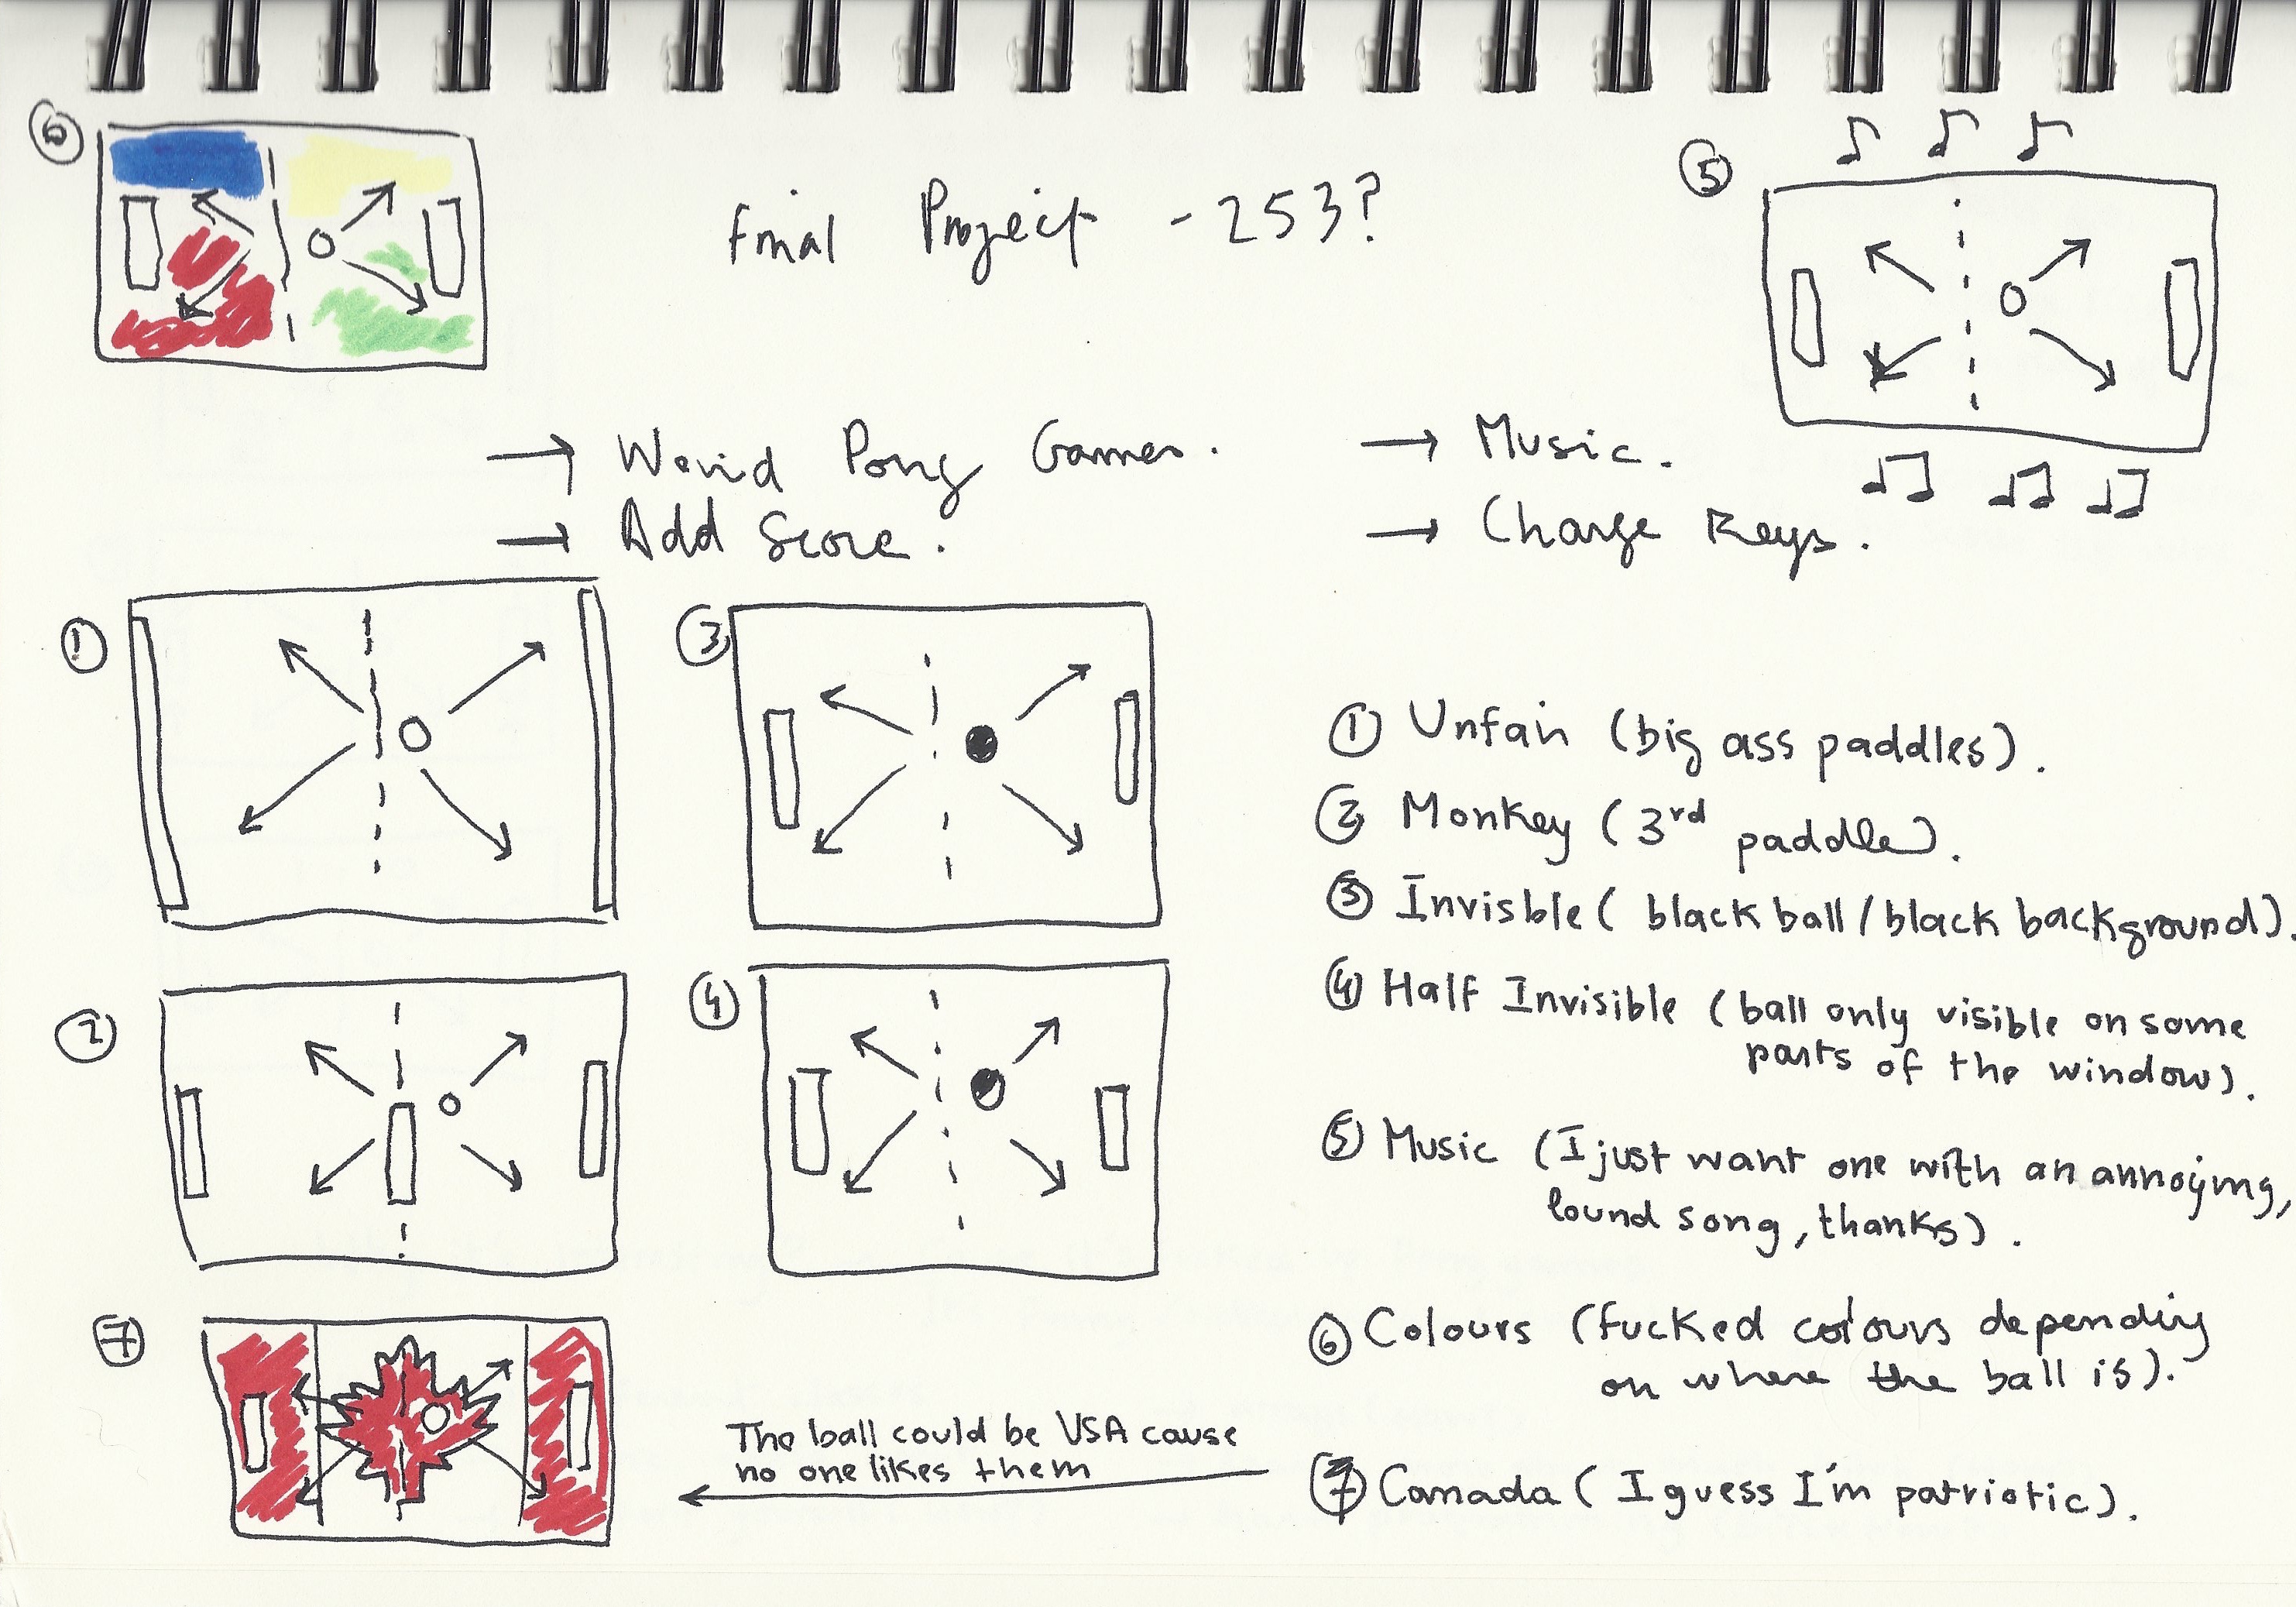 6
5
Final Project - 253?
→ Weird Pong Games.
→ Add Score.
→ Music.
→ Change Keys.
1
3
2
4
7
① Unfair (big ass paddles).
② Monkey (3rd paddle).
③ Invisble (black ball/black background).
④ Half Invisible (ball only visible on some
parts of the window).
⑤ Music (I just want one with an annoying,
lound song, thanks).
⑥ Colours (fucked colours depending
on where the ball is).
⑦ Canada (I guess I'm patriotic).
The ball could be USA cause
no one likes them